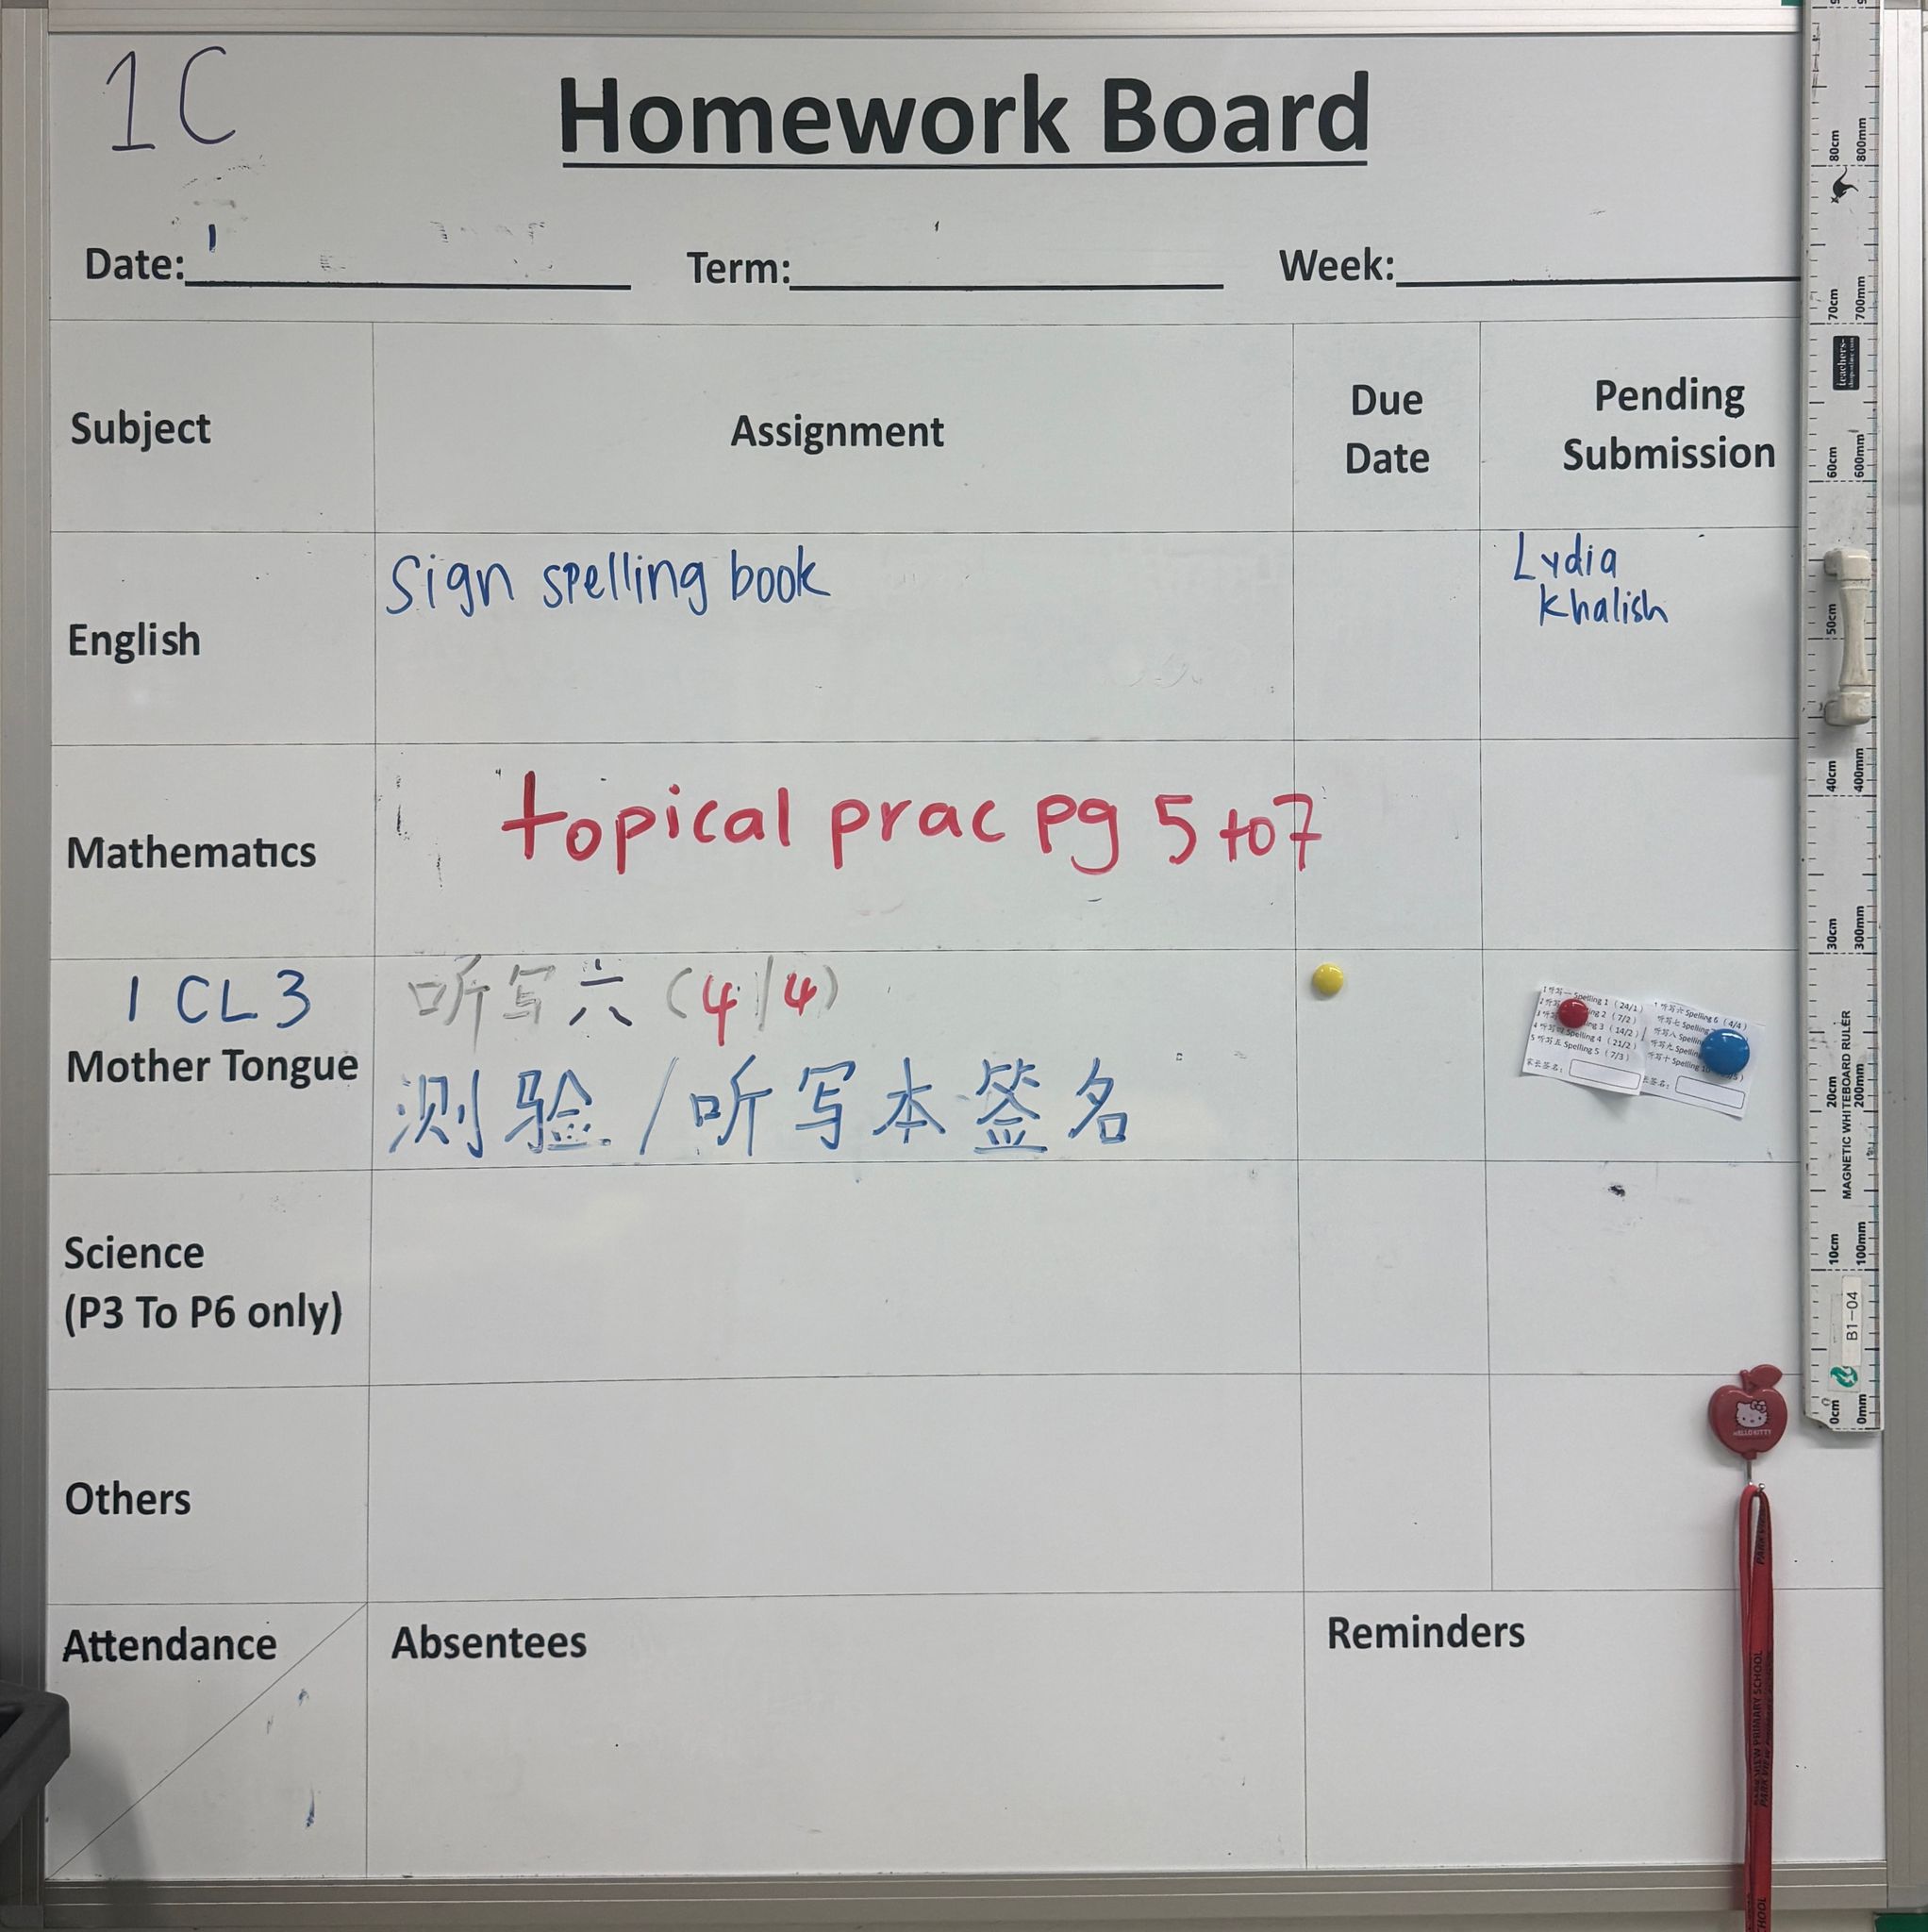 1C
Homework Board
Date:
Term:
Week:
Subject
Assignment
Due Date
Pending Submission
English
Sign spelling book
Lydia
Khalish
Mathematics
topical prac pg 5 to 7
1 CL 3
Mother Tongue
听写六 (4/4)
测验/听写本签名
1 听写一 Spelling 1 (24/1)
2 听写 ing 2 (7/2)
3 听写 ing 3 (14/2)
4 听写四 Spelling 4 (21/2)
5 听写五 Spelling 5 (7/3)
家长签名:
听写六 Spelling 6 (4/4)
听写七 Spelling
听写八 Spelling
听写九 Spelling
听写十 Spelling 10
长签名:
Science
(P3 To P6 only)
Others
Attendance
Absentees
Reminders
80cm 800mm
70cm 700mm
teachers-
60cm 600mm
50cm
40cm 400mm
30cm 300mm
20cm 200mm
MAGNETIC WHITEBOARD RULER
10cm 100mm
B1-04
0cm 0mm
HELLO KITTY
PARK VIEW PRIMARY SCHOOL